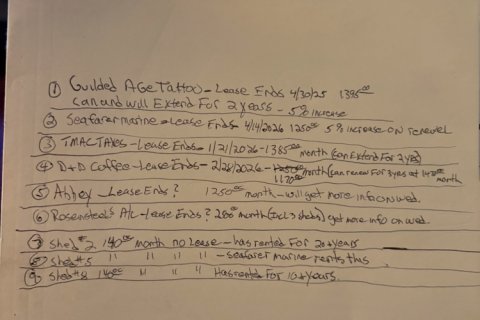 ① Guilded Age Tattoo - Lease Ends 4/30/25 1395.00
can and will Extend For 2 years - 5% increase
② Seafarer marine - Lease Ends - 4/14/2026 1250.00 5% increase on renewel
③ TMAC TAXES - Lease Ends - 1/21/2026 - 1385.00 month (can Extend For 2 yrs)
④ D+D Coffee - Lease Ends - 2/28/2026 - 1250.00 month (can renew For 3 years at
1170.00 month
⑤ Abbey - Lease Ends? 1250.00 month - will get more info on wed.
⑥ Rosensteel's A/c - Lease Ends? 280.00 month (incl 3 sheds) get more info on wed.
⑦ Shed #2 140.00 month no Lease - has rented For 20+ years
⑧ Shed #5 " " " " - seafarer marine rents this
⑨ Shed #8 140.00 " " " Has rented For 10+ years.